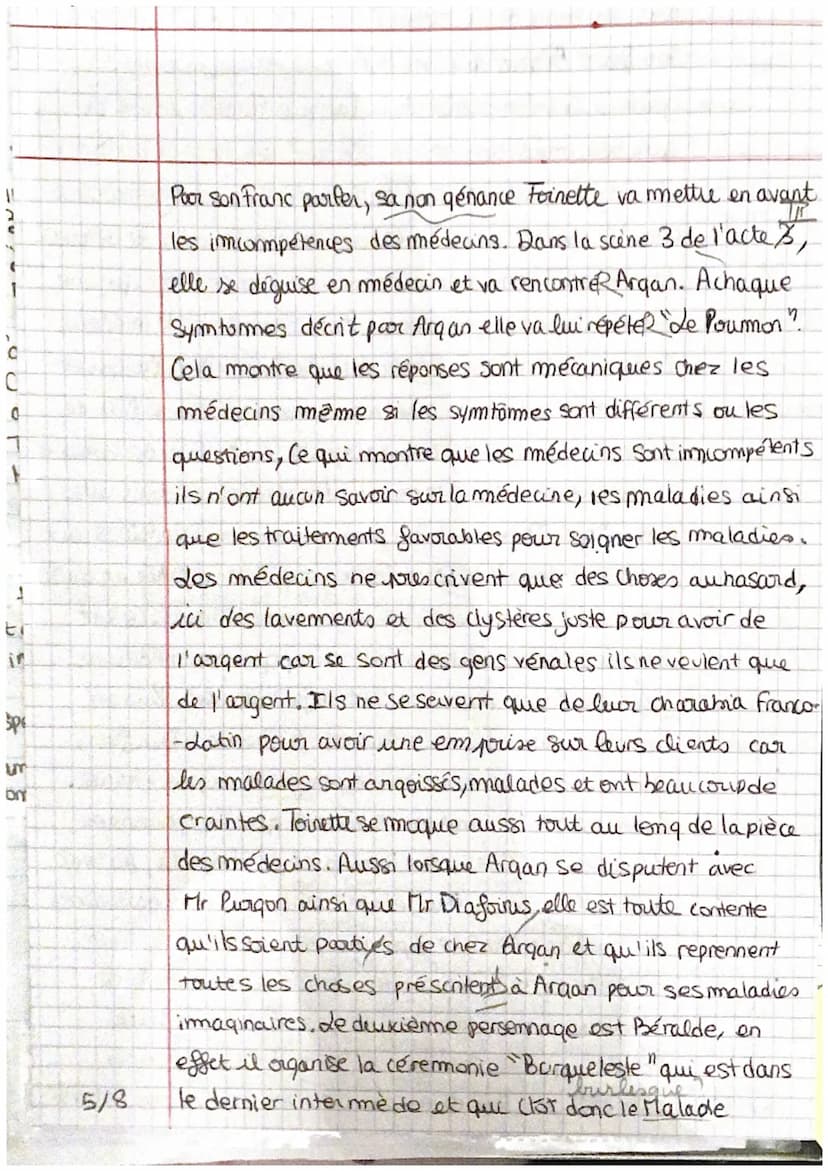 Par son franc parler, sa non génance Toinette va mettre en avant
les imcompétences des médecins. Dans la scène 3 de l'acte III,
elle se déguise en médecin et va rencontrer Argan. Achaque
Symtomes décrit par Argan elle va lui répéter "Le Poumon".
Cela montre que les réponses sont mécaniques chez les
médecins même si les symtômes sont différents ou les
questions, Ce qui montre que les médecins sont imcompétents
ils n'ont aucun savoir sur la médecine, les maladies ainsi
que les traitements favorables pour soigner les maladies.
Les médecins ne prescrivent que des choses au hasard,
ici des lavements et des clystères juste pour avoir de
l'argent car se sont des gens vénales ils ne veulent que
de l'argent. Ils ne se servent que de leur charabia franco-
-Latin pour avoir une emprise sur leurs clients car
les malades sont angoissés, malades et ont beaucoup de
craintes. Toinette se moque aussi tout au long de la pièce
des médecins. Aussi lorsque Argan se disputent avec
Mr Purgon ainsi que Mr Diafoirus, elle est toute contente
qu'ils soient partis de chez Argan et qu'ils reprennent
toutes les choses présentent à Argan pour ses maladies
immaginaires. Le deuxième personnage est Béralde, en
effet il organise la céremonie "Burqueleste" qui est dans
burlesque
5/8 le dernier intermède et qui clot donc le Malade